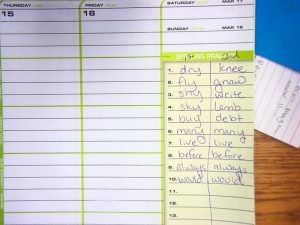 THURSDAY FRIDAY SATURDAY MAR 17
15 16
SUNDAY MAR 18
1. dry knee
2. fly gnaw
3. shy write
4. sky lamb
5. buy debt
6. many many
7. live live
8. before before
9. always always
10. would would
11.
12.
13.